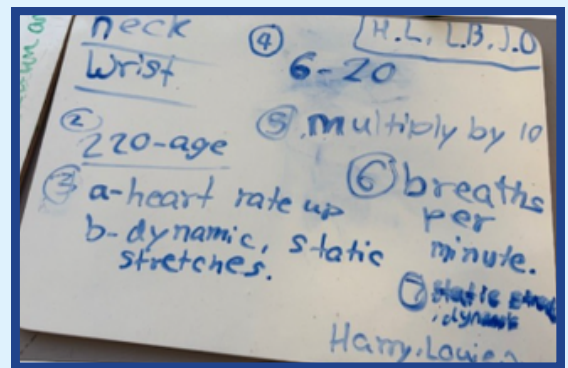 neck
wrist
② 220-age
③ a-heart rate up
b-dynamic, static
stretches.
④ H.L, L.B, J.O
6-20
⑤ multiply by 10
⑥ breaths
per
minute.
⑦ static
Harry, Louie